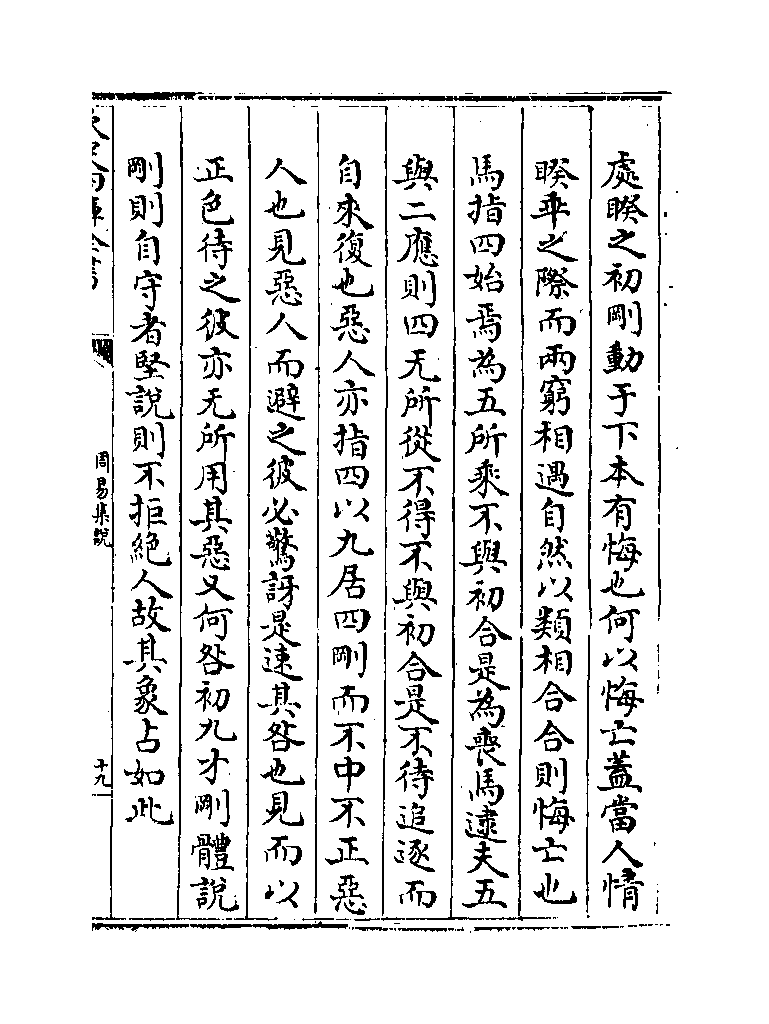 處睽之初剛動于下本有悔也何以悔亡蓋當人情
睽乖之際而兩窮相遇自然以類相合合則悔亡也
馬指四始焉為五所乘不與初合是為喪馬逮夫五
與二應則四无所從不得不與初合是不待追逐而
自來復也惡人亦指四以九居四剛而不中不正惡
人也見惡人而避之彼必驚訝是速其咎也見而以
正色待之彼亦无所用其惡又何咎初九才剛體說
剛則自守者堅說則不拒絶人故其象占如此
周易集說
十九